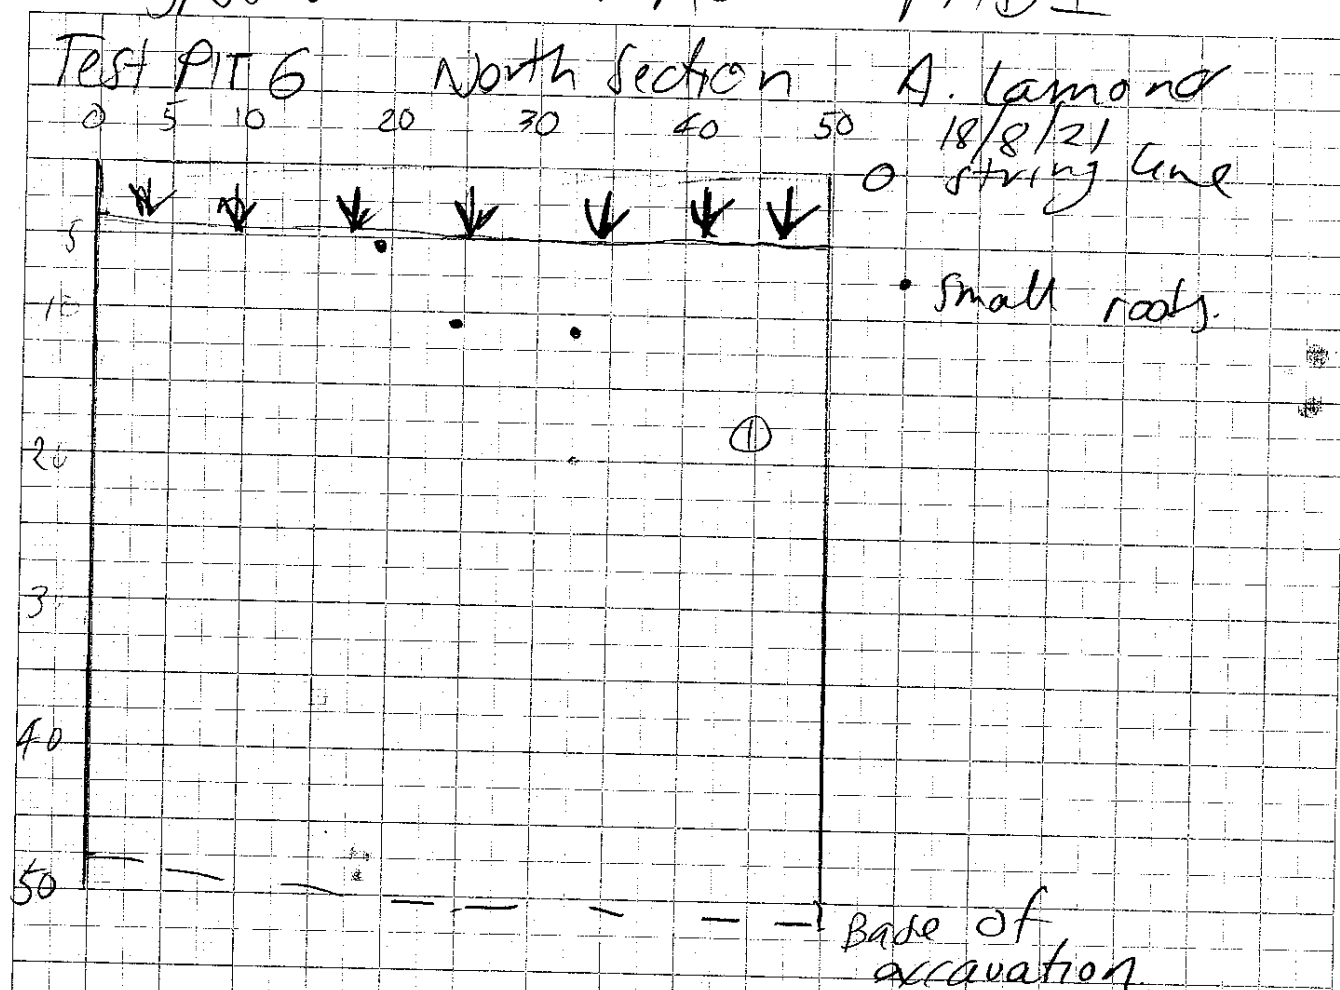 Test PIT 6 North Section A. Lamond
0 5 10 20 30 40 50 18/8/21
0 string line
5
• small roots.
10
①
20
3
40
50
Base of
excavation